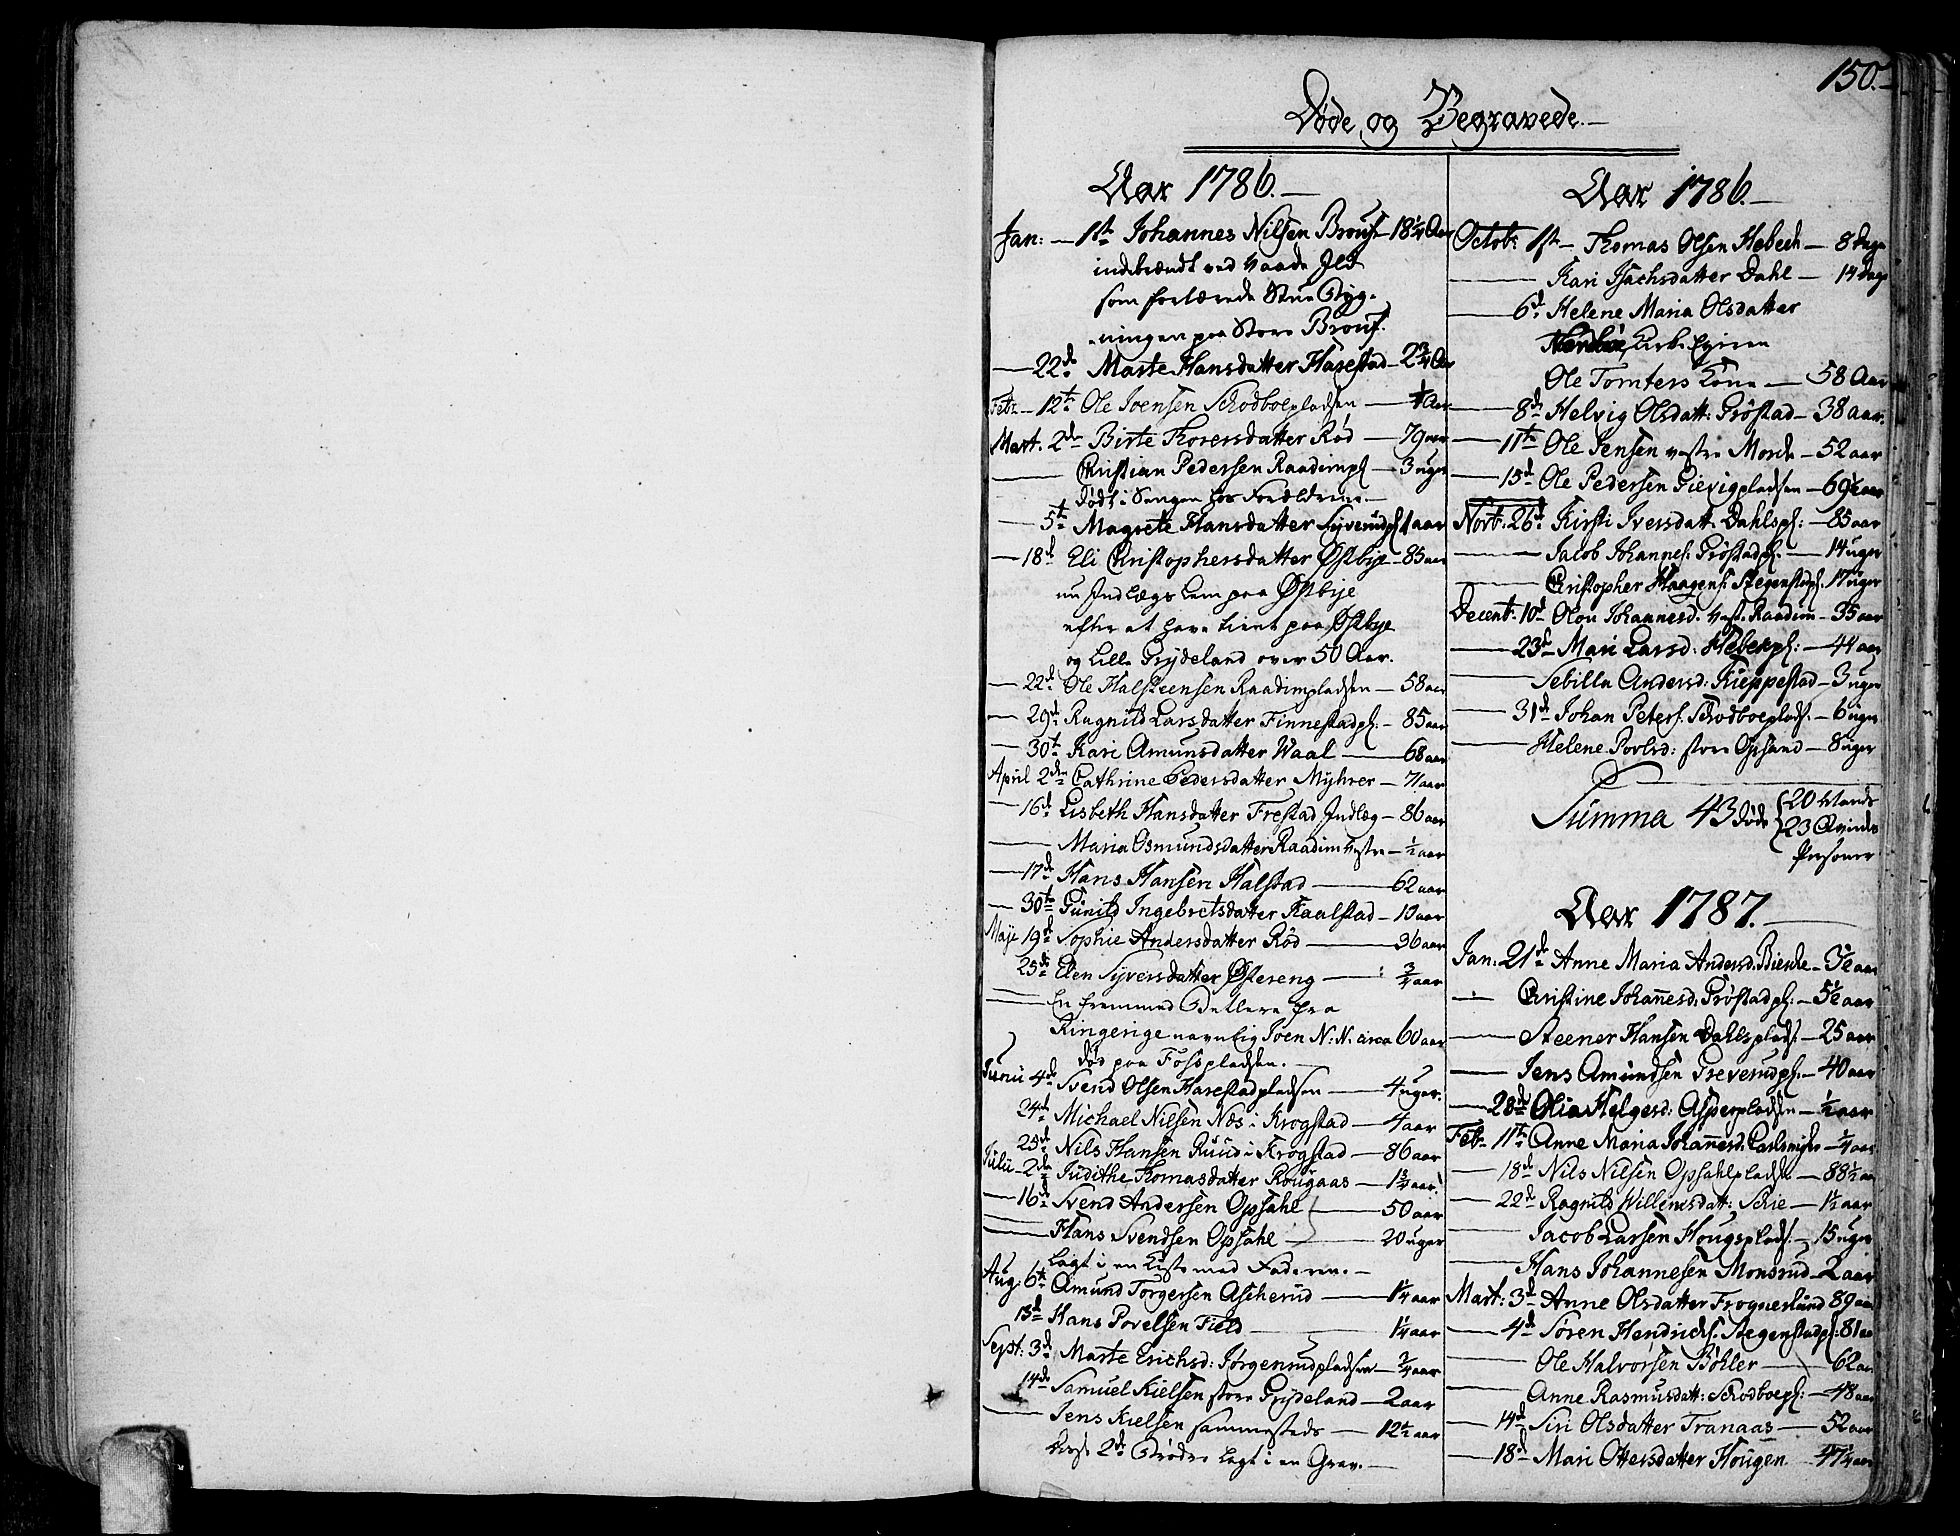 150.
Døde, og Begravede.
Aar 1786.
Jan: 1ste Johannes Nilsen Brous 18 1/4 Aar
indebrændt ved Vaade Ild
som fortærede Stue Byg-
ningen paa Store Brous.
22de Marte Hansdatter Harestad 2 3/4 Aar
Febr. 12te Ole Joensen Schodboepladsen Aar
Mart. 2den Birte Thorersdatter Rød 79 aar
Christian Pedersen Raadimpl 3 uger
død i Sengen hos Forældrene.
5te Magrete Hansdatter Syverudpl 1 aar
18de Eli Christophersdatter Østbye 85 aar
nu Indlægs Lem paa Østbye
efter at have tient paa Østbye
og Lille Grydeland over 50 Aar.
22de Ole Halsteensen Raadimpladsen 58 aar
29de Ragnild Larsdatter Finnestadpl: 85 aar
30te Kari Amunsdatter Waal 68 aar
April 2den Cathrine Pedersdatter Myhrer 71 aar
16de Lisbeth Hansdatter Frestad Indlæg 86 aar
Maria Osmundsdatter Raadim vestre 1/2 aar
17de Hans Hansen Halstad 62 aar
30te Gunild Ingebretsdatter Kaalstad 13 aar
Maje 19de Sophie Andersdatter Rød 36 aar
25de Elen Syversdatter Østereng 3/4 aar
En fremmed Betlere fra
Ringerige navnlig Joen N: N. circa 60 aar
død paa Fossepladsen.
Junii 4de Svend Olsen Harestadpladsen 4 uger.
24de Michael Nilsen Nøs i Krogstad 4 aar
25de Nils Hansen Ruud i Krogstad 86 aar
Julii 2den Judithe Thomasdatter Rougaas 1 3/4 aar
16de Svend Andersen Opsahl 50 aar
Hans Svendsen Opsahl 20 uger
lagt i en Kiste med Faderen.
Aug: 6te Amund Torgersen Ascherud 1 1/4 aar
13de Hans Povelsen Field 1 1/4 aar
Sept: 3de Marte Erichsd: Jørgenrudpladsen 3/4 aar
14de Samuel Kielsen store Grydeland 2 aar
Jens Kielsen sammesteds 12 1/2 aar
disse 2de Brødre lagt i en Grav.
Aar 1786.
Octob: 1ste Thomas Olsen Hebech 8 dage
Kari Isachsdatter Dahl 14 dage
6te Helene Maria Olsdatter
Kirke Ejeren
Ole Tomters Kone 58 Aar
8de Helvig Olsdatt: Prøstad 38 aar.
11te Ole Jensen vestre Morch 52 aar
15de Ole Pedersen Gievigpladsen 69 1/2 aar
Novb: 26de Kirsti Iversdatt: Dahlspl: 85 aar
Jacob Johannes: Prøstadpl: 14 uger
Christopher Haagens: Stegenstadpl. 17 uger
Decemb: 10de Olou Johannesd: Vest. Raadim 35 aar
23de Mari Larsd: Hebekpl: 44 aar
Sebilla Andersd: Kieppestad 3 uger
31de Johan Peters: Schodboeplads: 6 uger
Helene Povlsd: store Opsand 8 uger
Summa 43 døde { 20 Mands
23 Qvinde
Personer
Aar 1787.
Jan: 21de Anne Maria Andersd: Biercke 3 1/2 aar
Christine Johañesd: Prøstadpl: 5 1/2 aar
Steener Hansen Dahlsplads: 25 aar
Jens Amundsen Greverudpl: 40 aar
28de Olia Helgesd: Asperpladsen 1/2 aar
Feb. 11te Anne Maria Johañesd: 1/4 aar
18de Nils Nilsen Opsahlplads: 88 1/2 aar
22de Ragnild Willemsdatt: Schie 1 1/2 aar
Jacob Larsen Hougsplads: 15 uger
Hans Johannesen Monsrud 2 aar
Mart: 3de Anne Olsdatter Frognerlund 89 aar
4de Søren Hendrichs: Stegenstadpl: 81 aar
Ole Halvorsen Bøhler 62 aar
Anne Rasmusdatt: Schodboepl: 48 aar
14de Siri Olsdatter Tranaas 52 aar
18de Mari Ottersdatter Hougen 47 1/4 aar